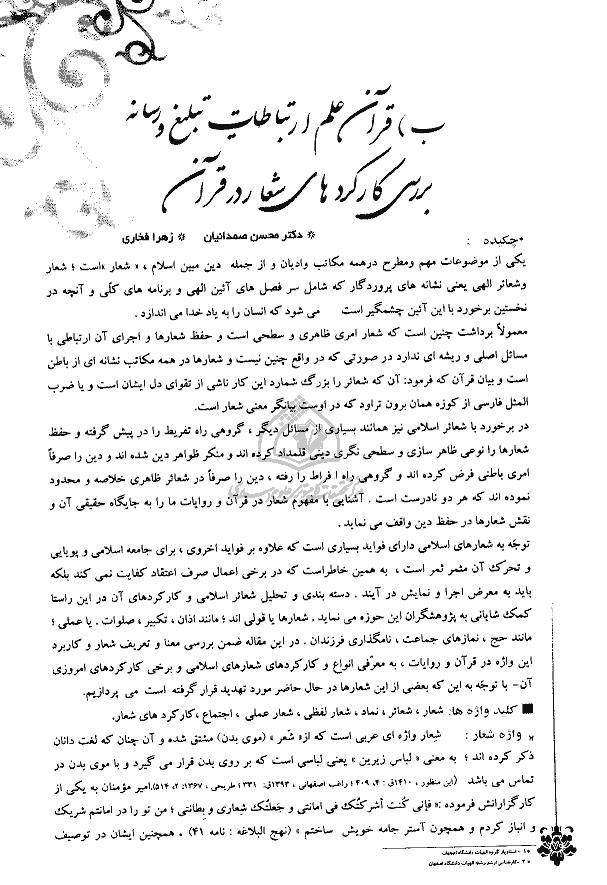 ب) قرآن علم ارتباطات تبلیغ و رسانه
بررسی کارکردهای شعار در قرآن
* دکتر محسن صمدانیان * زهرا فخاری
*چکیده :
یکی از موضوعات مهم ومطرح درهمه مکاتب وادیان و از جمله دین مبین اسلام ، « شعار »است ؛ شعار
وشعائر الهی یعنی نشانه های پروردگار که شامل سر فصل های آئین الهی و برنامه های کلّی و آنچه در
نخستین برخورد با این آئین چشمگیر است می شود که انسان را به یاد خدا می اندازد .
معمولاً برداشت چنین است که شعار امری ظاهری و سطحی است و حفظ شعارها و اجرای آن ارتباطی با
مسائل اصلی و ریشه ای ندارد در صورتی که در واقع چنین نیست و شعارها در همه مکاتب نشانه ای از باطن
است و بیان قرآن که فرمود: آن که شعائر را بزرگ شمارد این کار ناشی از تقوای دل ایشان است و یا ضرب
المثل فارسی از کوزه همان برون تراود که در اوست بیانگر معنی شعار است.
در برخورد با شعائر اسلامی نیز همانند بسیاری از مسائل دیگر ، گروهی راه تفریط را در پیش گرفته و حفظ
شعارها را نوعی ظاهر سازی و سطحی نگری دینی قلمداد کرده اند و منکر ظواهر دین شده اند و دین را صرفاً
امری باطنی فرض کرده اند و گروهی راه افراط را رفته ، دین را صرفاً در شعائر ظاهری خلاصه و محدود
نموده اند که هر دو نادرست است . آشنایی با مفهوم شعار در قرآن و روایات ما را به جایگاه حقیقی آن و
نقش شعارها در حفظ دین واقف می نماید .
توجّه به شعارهای اسلامی دارای فواید بسیاری است که علاوه بر فواید اخروی ، برای جامعه اسلامی و پویایی
و تحرک آن مثمر ثمر است ، به همین خاطراست که در برخی اعمال صرف اعتقاد کفایت نمی کند بلکه
باید به معرض اجرا و نمایش در آیند . دسته بندی و تحلیل شعائر اسلامی و کارکردهای آن در این راستا
کمک شایانی به پژوهشگران این حوزه می نماید . شعارها یا قولی اند ؛ مانند اذان ، تکبیر ، صلوات . یا عملی ؛
مانند حج ، نمازهای جماعت ، نامگذاری فرزندان . در این مقاله ضمن بررسی معنا و تعریف شعار و کاربرد
این واژه در قرآن و روایات ، به معرّفی انواع و کارکردهای شعارهای اسلامی و برخی کارکردهای امروزی
آن- با توجّه به این که بعضی از این شعارها در حال حاضر مورد تهدید قرار گرفته است می پردازیم.
■ کلید واژه ها: شعار ، شعائر ، نماد ، شعار لفظی ، شعار عملی ، اجتماع ،کارکرد های شعار.
* واژه شعار : شِعار واژه ای عربی است که ازه شَعر » (موی بدن) مشتق شده و آن چنان که لغت دانان
ذکر کرده اند ؛ به معنی « لباس زیرین » یعنی لباسی است که بر روی بدن قرار می گیرد و با موی بدن در
تماس می باشد (ابن منظور ، ۱۴۱۰ق: ۴، ۴۰۹ ؛ راغب اصفهانی ، ۱۳۹۳ق: ۳۳۱ ؛ طریحی ، ۱۳۶۷: ۲، ۵۱۴).امیر مؤمنان به یکی از
کارگزارانش فرموده :« فإنی کُنت أشرکتُک فی امانتی و جَعلتُک شِعاری و بِطانتی ؛ من تو را در امانتم شریک
و انباز کردم و همچون آستر جامه خویش ساختم » (نهج البلاغه : نامه ۴۱) . همچنین ایشان در توصیف
۱* - استادیار گروه الهیات دانشگاه اصفهان
۲* -کارشناسی ارشد رشته الهیات دانشگاه اصفهان